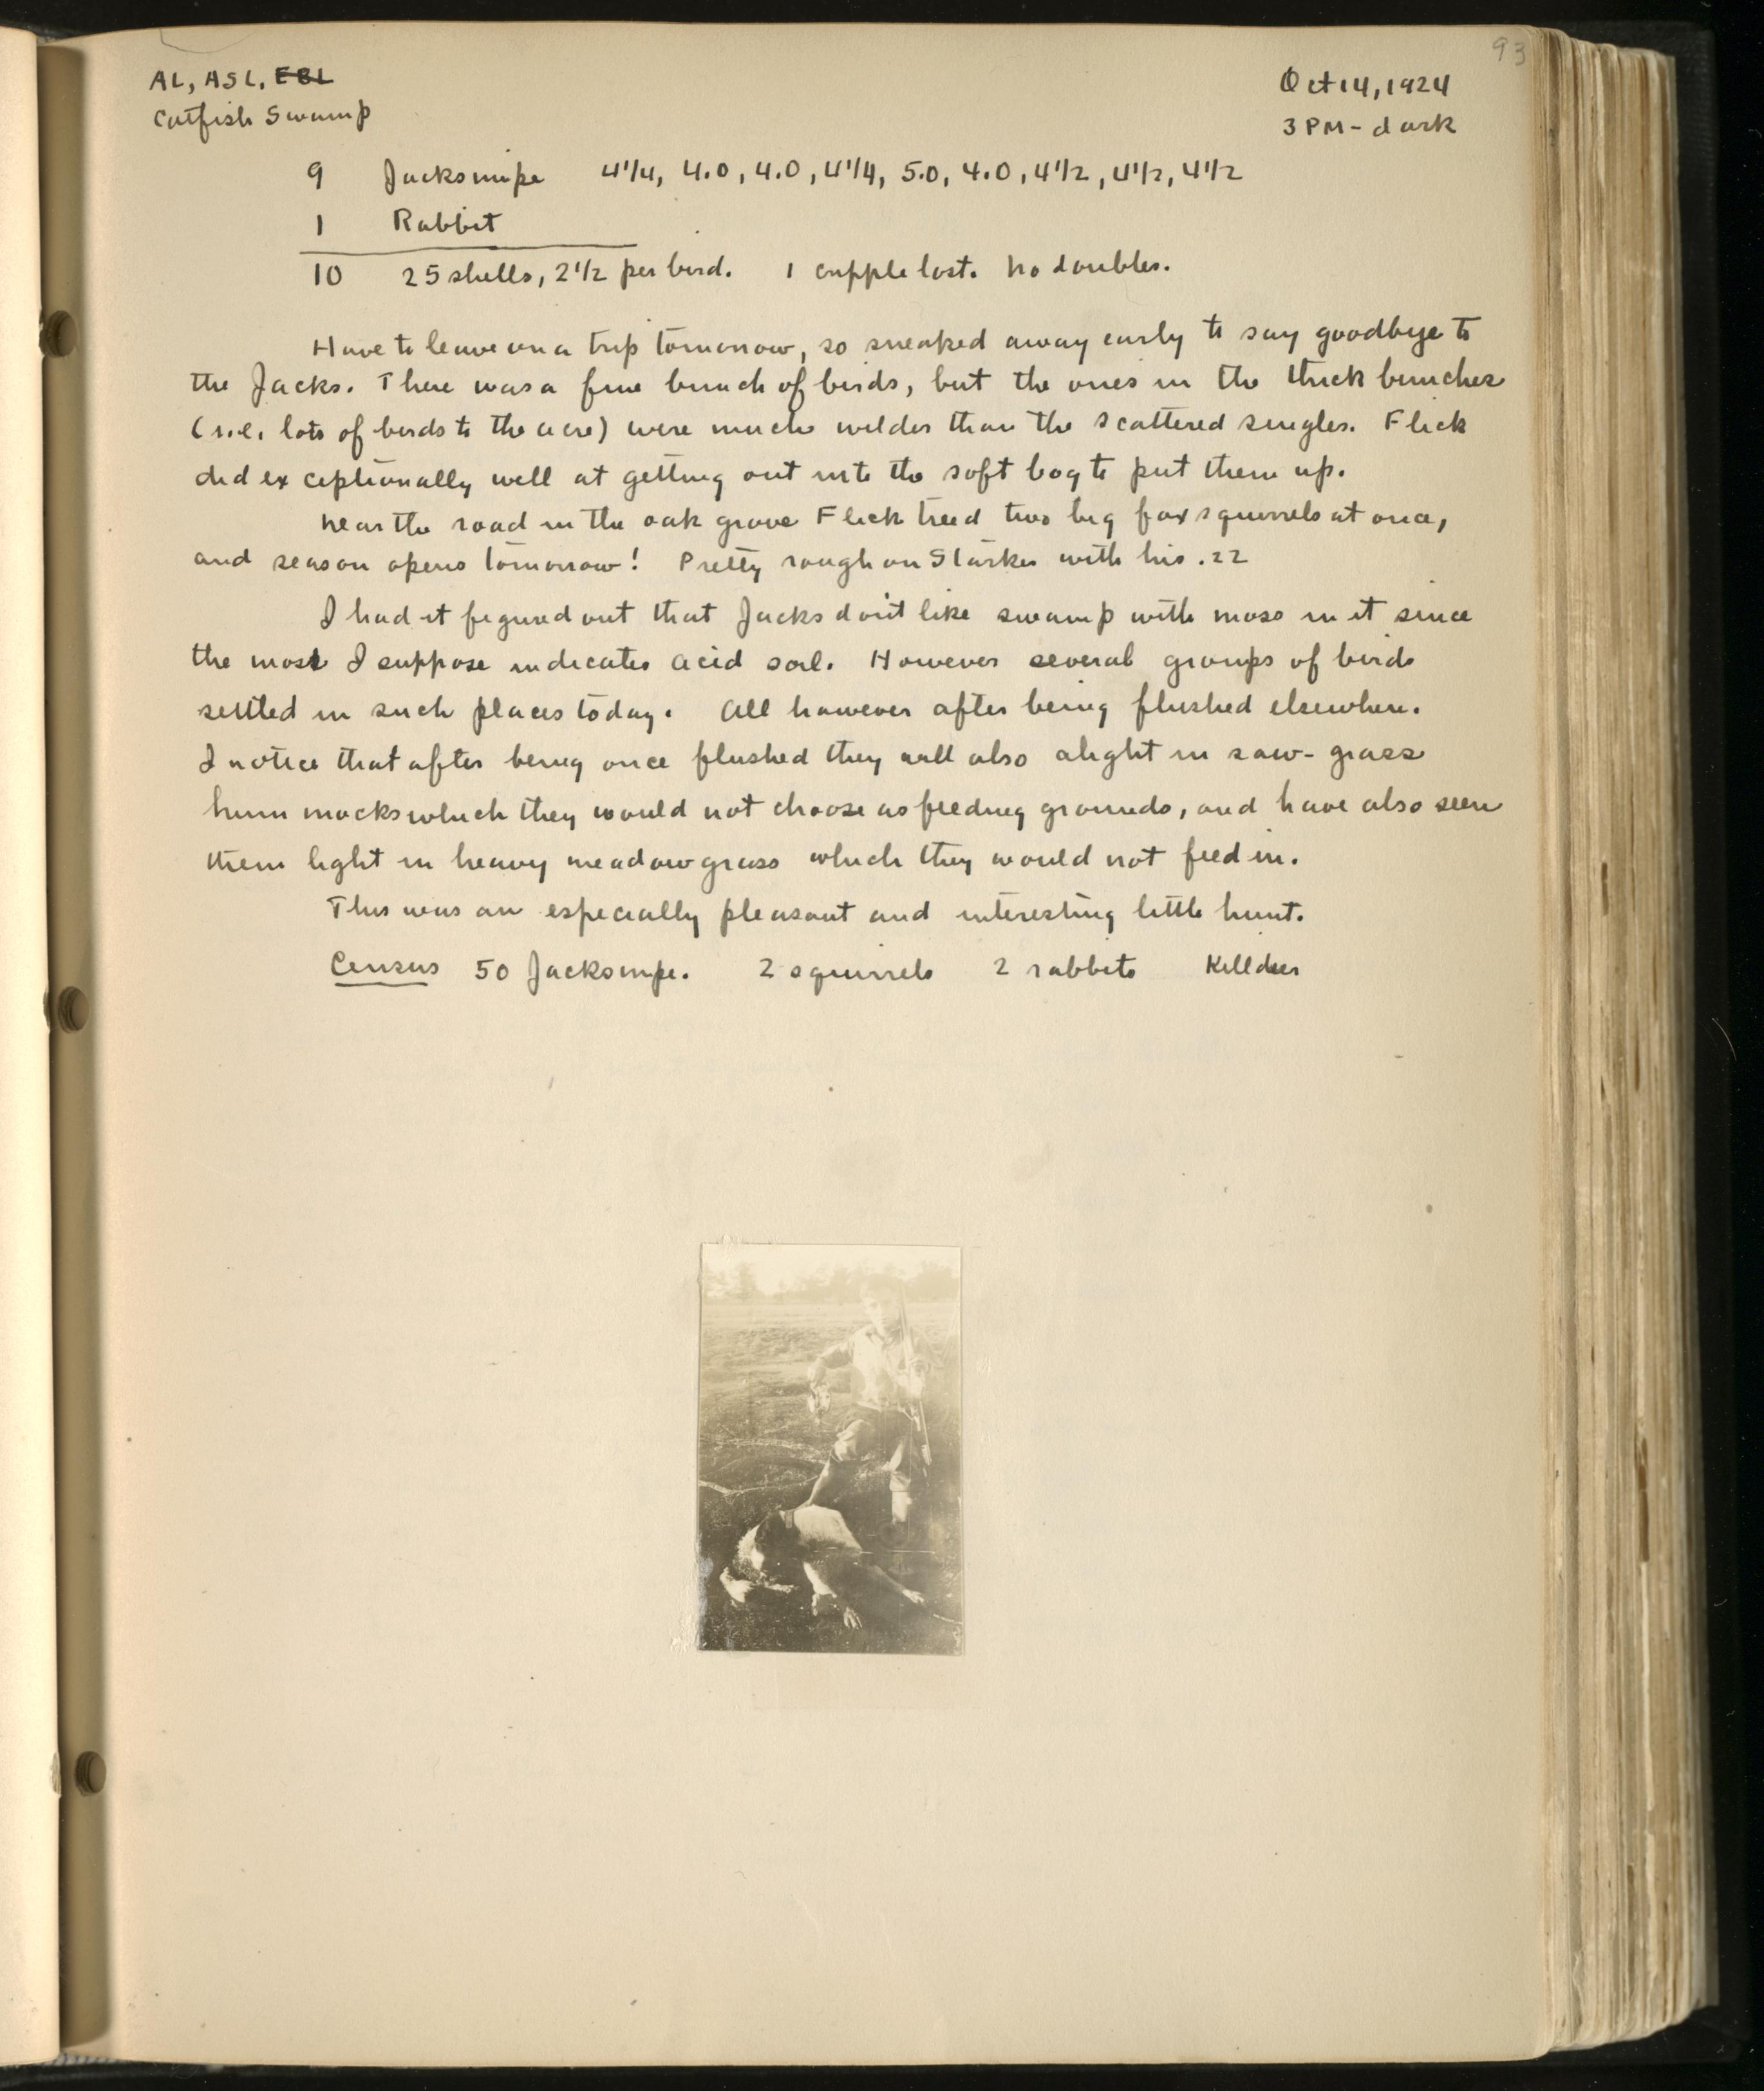 93
AL, ASL, EBL
Catfish Swamp
Oct 14, 1924
3 PM - dark
9 Jacksnipe 4 1/4, 4.0, 4.0, 4 1/4, 5.0, 4.0, 4 1/2, 4 1/2, 4 1/2
1 Rabbit
10 25 shells, 2 1/2 per bird. 1 cripple lost. No doubles.
Have to leave on a trip tomorrow, so sneaked away early to say goodbye to
the Jacks. There was a fine bunch of birds, but the ones in the thick bunches
(i.e. lots of birds to the acre) were much wilder than the scattered singles. Flick
did exceptionally well at getting out into the soft bog to put them up.
Near the road in the oak grove Flick treed two big fox squirrels at once,
and season opens tomorrow! Pretty rough on Starker with his .22
I had it figured out that Jacks don't like swamp with moss in it since
the most I suppose indicates acid soil. However several groups of birds
settled in such places today. All however after being flushed elsewhere.
I notice that after being once flushed they will also alight in saw-grass
hummocks which they would not choose as feeding grounds, and have also seen
them light in heavy meadow grass which they would not feed in.
This was an especially pleasant and interesting little hunt.
Census 50 Jacksnipe. 2 squirrels 2 rabbits Killdeer